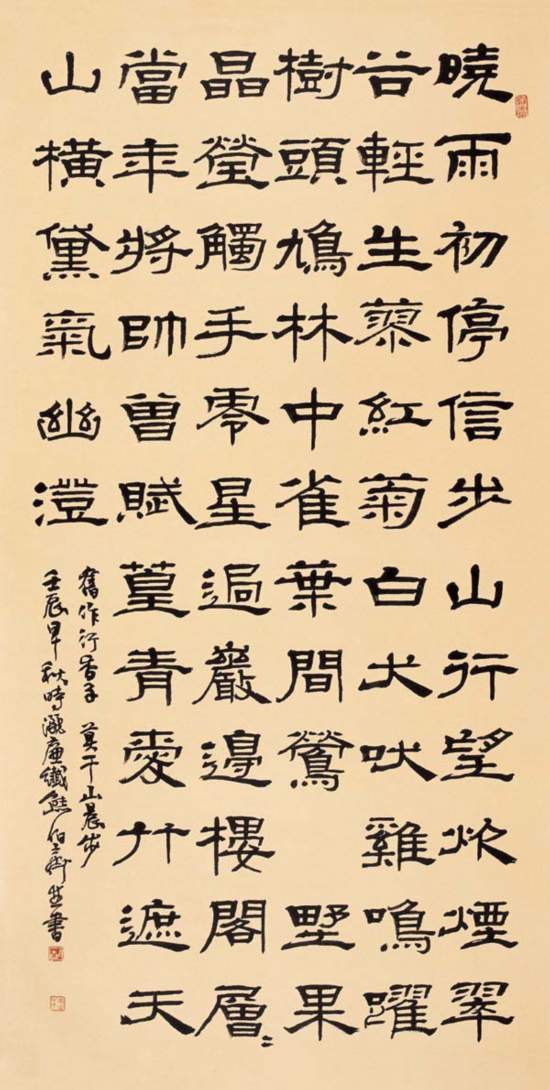 曉雨初停信步山行望炊煙翠
谷輕生蓼紅菊白犬吠雞鳴躍
樹頭鳩林中雀葉間鶯 野果
晶瑩觸手零星過巖邊樓閣層〻
當年將帥曾賦篁青愛竹遮天
山橫黛氣幽澄
舊作行香子 莫干山晨步
壬辰早秋時灑廉纖熊伯齊並書